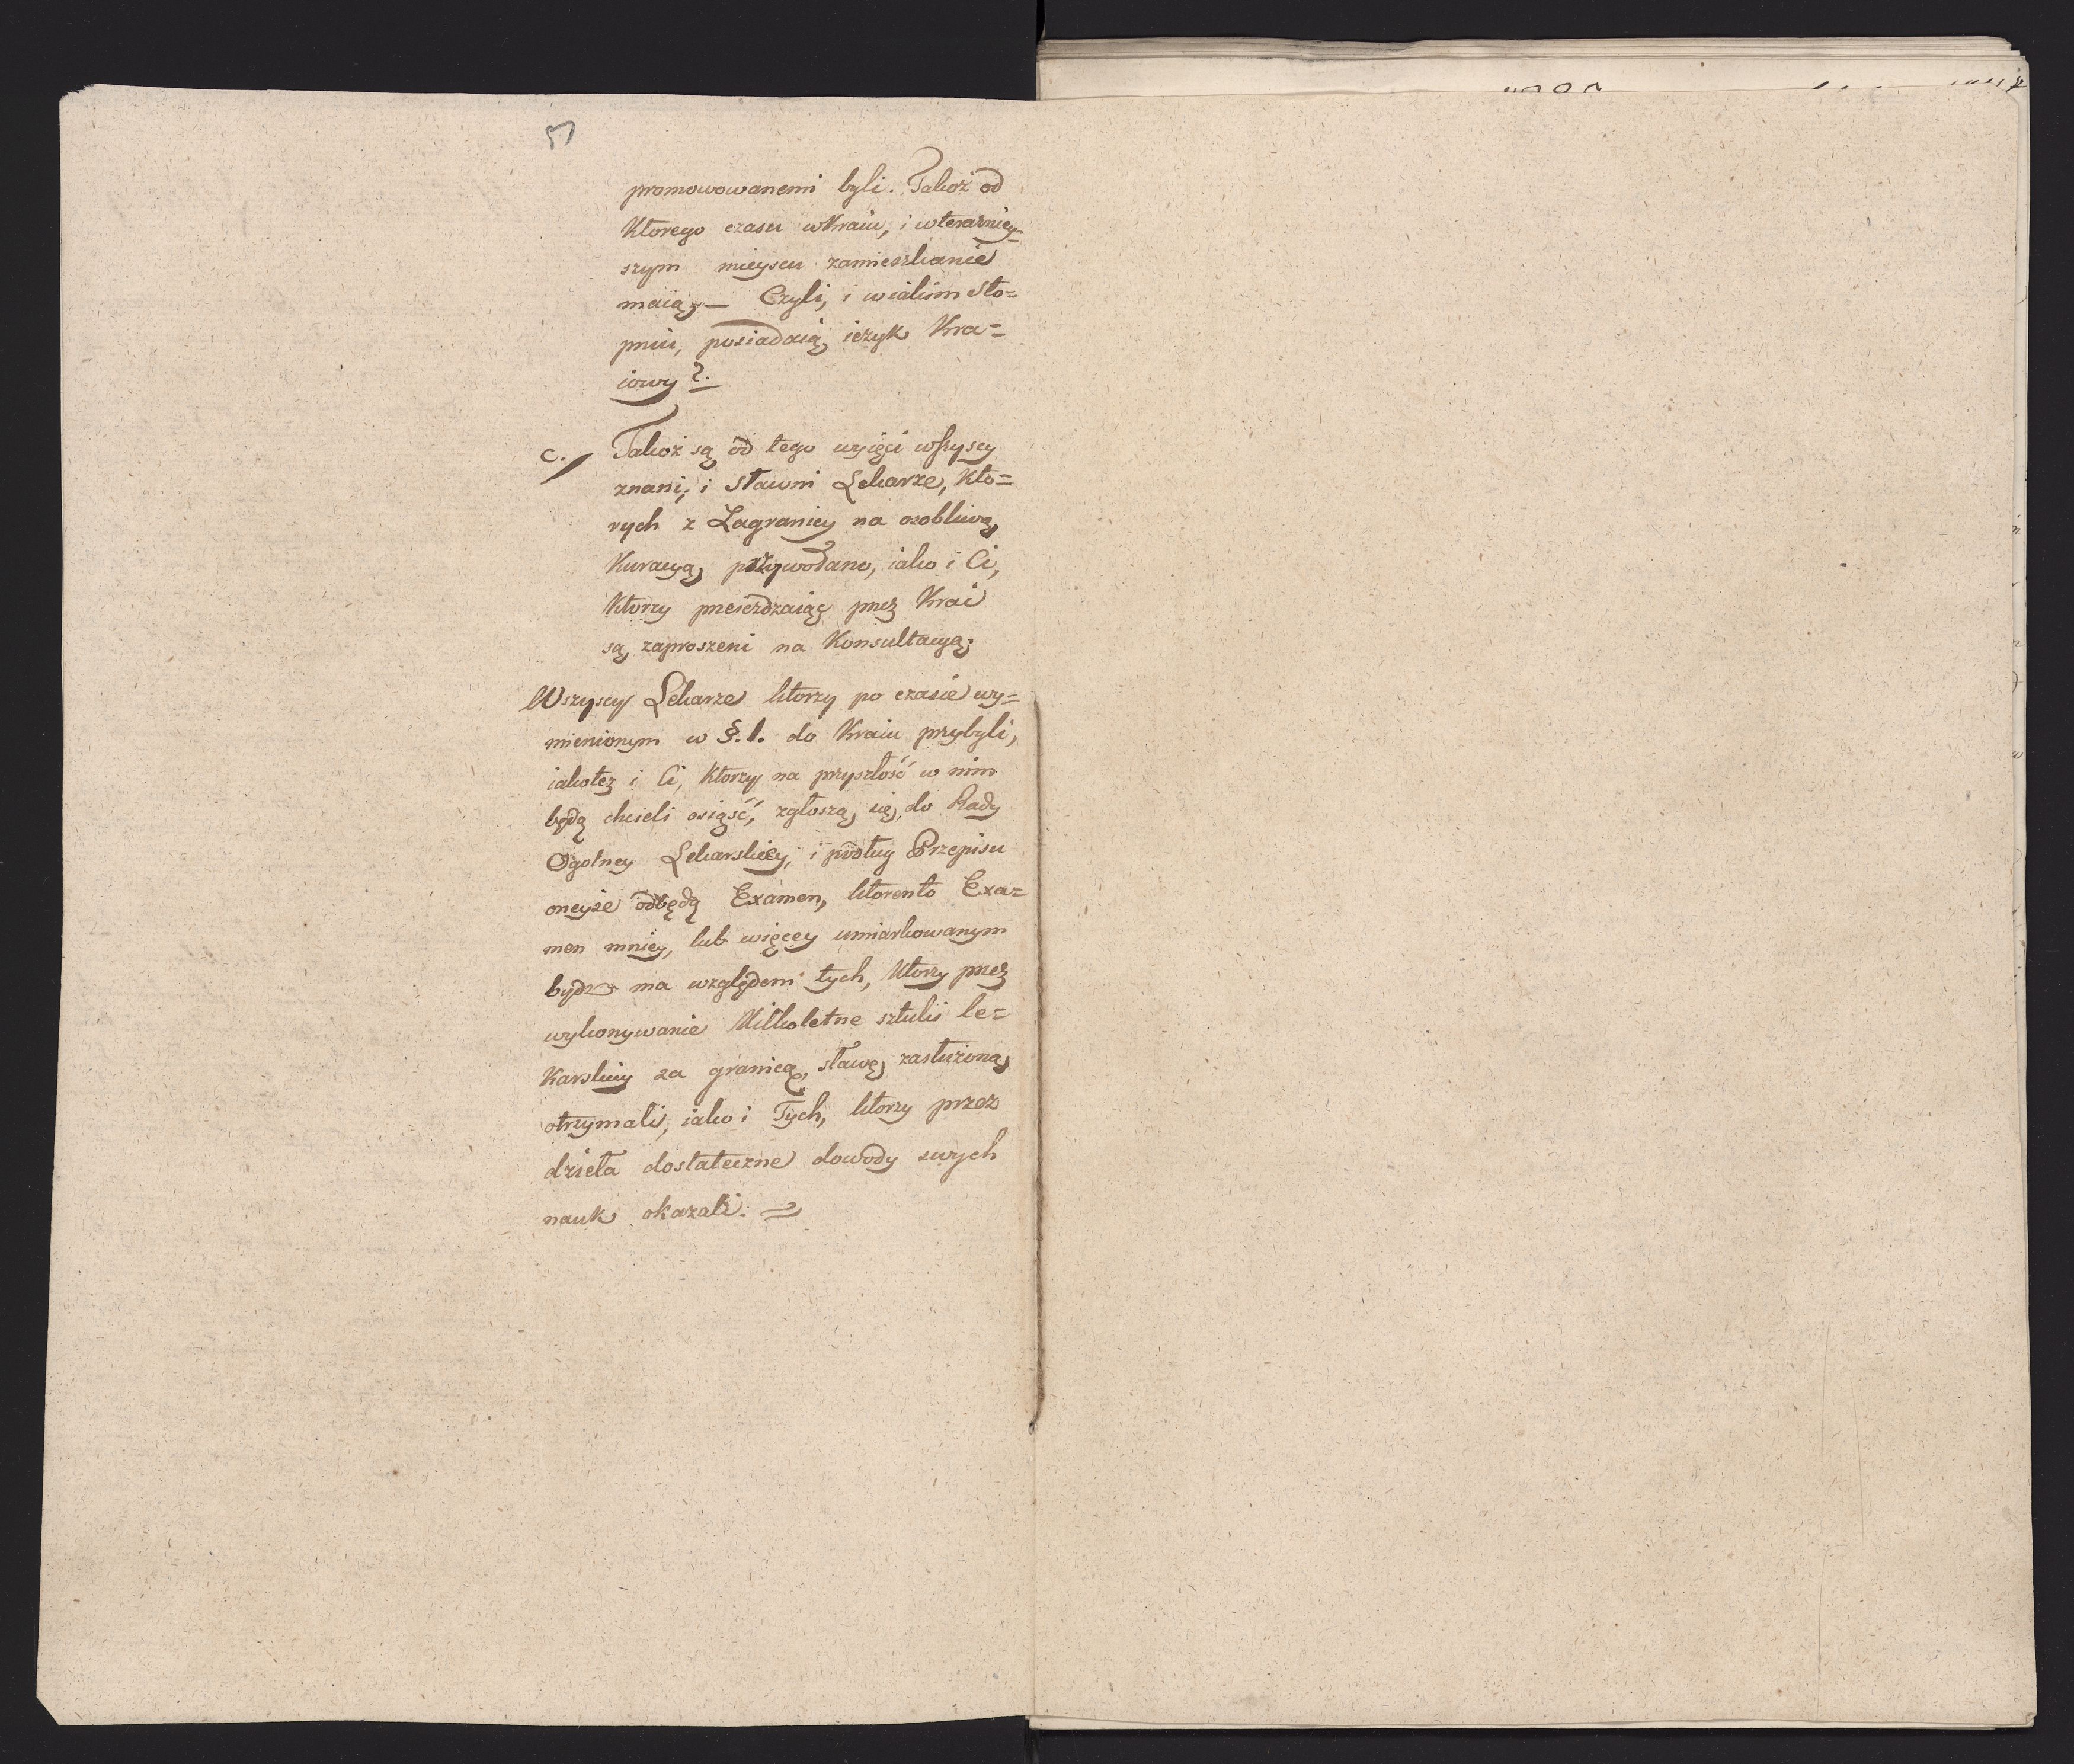 51
promowowanemi byli. Takoż od
Ktorego czasu w Kraiu, i w terazniey=
szym mieyscu zamieszkanie
maią, — Czyli, i w iakim sto=
pniu, posiadaią ięzyk Kra=
iowy?.
c. Takoż są od tego wyięci wszyscy
znani, i sławni Lekarze, Kto=
rych z Zagranicy na osobliwą
Kuracyą przywołano, iako i Ci,
Ktorzy przeieżdzaiąc przez Krai
są zaproszeni na Konsultacyą;
Wszyscy Lekarze ktorzy po czasie wy=
mienionym w §. 1. do Kraiu przybyli,
iakoteż i Ci, Ktorzy na przyszłość w nim
będą chcieli osiąść, zgłoszą się do Rady
Ogolney Lekarskiey, i podług Przepisu
oneyże odbędą Examen, ktorento Exa=
men mniey, lub więcey umiarkowanym
bydz ma względem tych, Ktorzy przez
wykonywanie Kilkoletne sztuki le=
Karskiey za granicą, sławę zasłużoną
otrzymali, iako i Tych, ktorzy przez
dzieła dostateczne dowody swych
nauk okazali. =